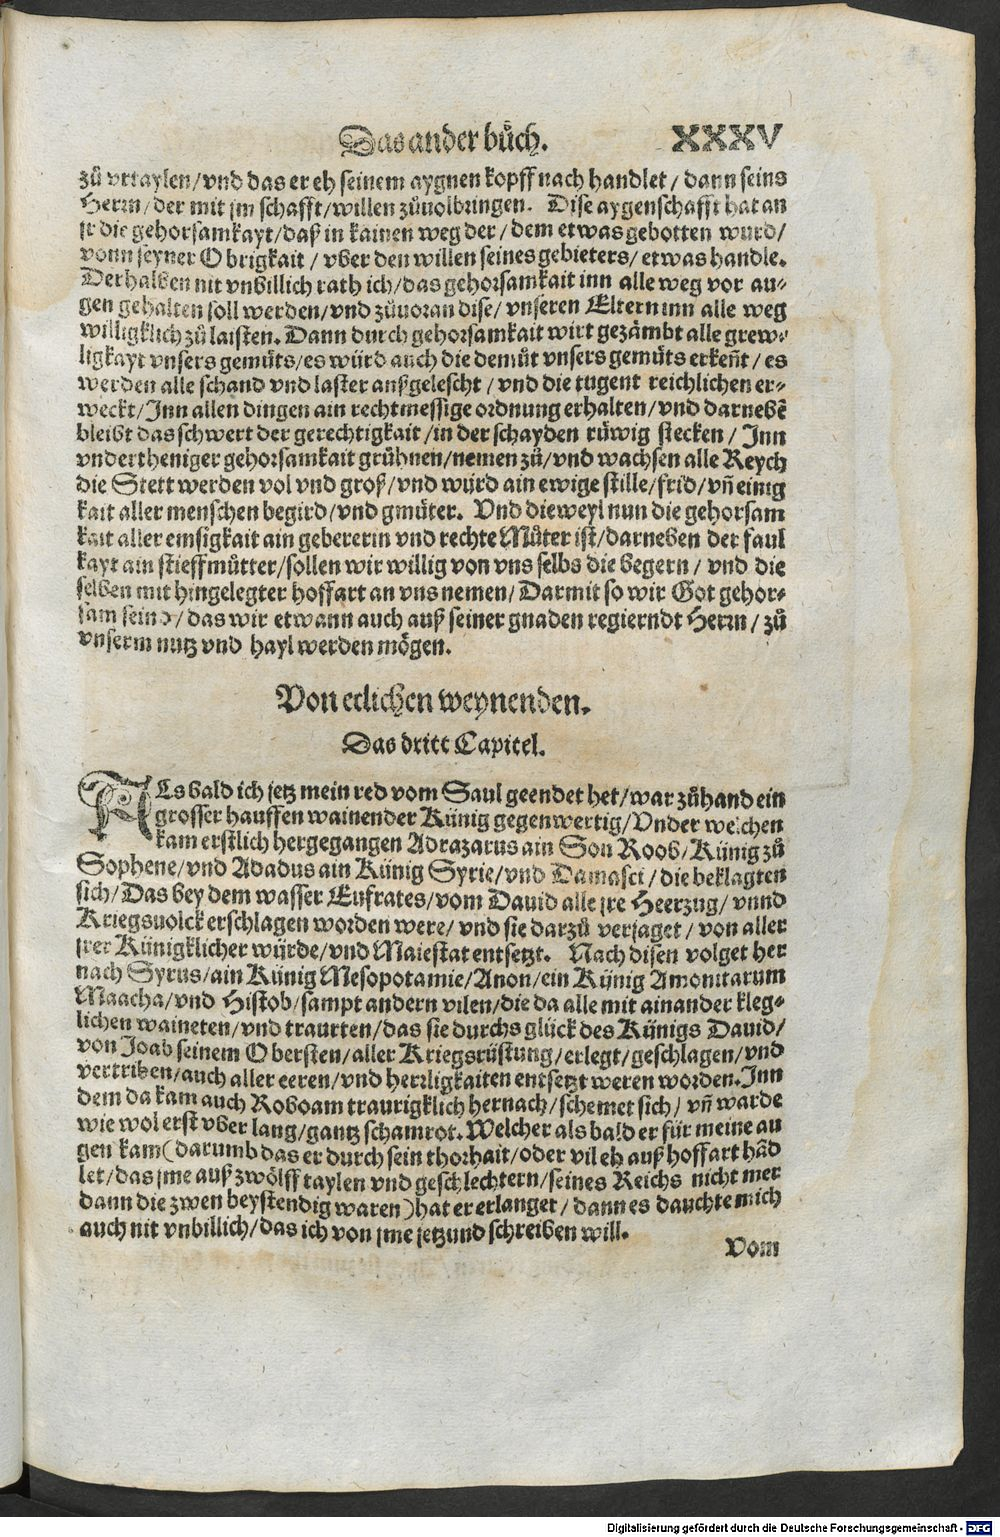 Das ander bůch. XXXV
zů vrtaylen/vnd das er eh seinem aygnen kopff nach handlet/ dann seins
Herrn/der mit jm schafft/willen zůuolbringen. Dise aygenschafft hat an
jr die gehorsamkayt/daß in kainen weg der/ dem etwas gebotten wurd/
vonn seyner Obrigkait/ vber den willen seines gebieters/ etwas handle.
Derhalben nit vnbillich rath ich/das gehorsamkait inn alle weg vor au-
gen gehalten soll werden/vnd zůuoran dise/ vnseren Eltern inn alle weg
willigklich zů laisten. Dann durch gehorsamkait wirt gezämbt alle grew-
ligkayt vnsers gemüts/es würd auch die demůt vnsers gemüts erkeñt/ es
werden alle schand vnd laster außgelescht/ vnd die tugent reichlichen er-
weckt/Inn allen dingen ain rechtmessige ordnung erhalten/vnd darnebẽ
bleibt das schwert der gerechtigkait/in der schayden rüwig stecken/ Inn
vndertheniger gehorsamkait grühnen/nemen zů/vnd wachsen alle Reych
die Stett werden vol vnd groß/vnd würd ain ewige stille/frid/vñ einig
kait aller menschen begird/vnd gmüter. Vnd dieweyl nun die gehorsam
kait aller emsigkait ain gebererin vnd rechte Můter ist/darneben der faul
kayt ain stieffmůtter/sollen wir willig von vns selbs die begern/ vnd die
selben mit hingelegter hoffart an vns nemen/ Darmit so wir Got gehor-
sam seind/das wir etwann auch auß seiner gnaden regierndt Herrn/ zů
vnserm nutz vnd hayl werden mögen.
Von etlichen weynenden.
Das dritt Capitel.
ALs bald ich jetz mein red vom Saul geendet het/war zůhand ein
grosser hauffen wainender Künig gegenwertig/Vnder welchen
kam erstlich hergegangen Adrazarus ain Son Roob/Künig zů
Sophene/vnd Adadus ain Künig Syrie/vnd Damasci/die beklagten
sich/Das bey dem wasser Eufrates/vom Dauid alle jre Heerzug/ vnnd
Kriegsuolck erschlagen worden were/ vnd sie darzů verjaget/von aller
jrer Künigklicher würde/vnd Maiestat entsetzt. Nach disen volget her
nach Syrus/ain Künig Mesopotamie/Anon/ein Künig Amonitarum
Maacha/vnd Histob/sampt andern vilen/die da alle mit ainander kleg-
lichen waineten/vnd traurten/das sie durchs glück des Künigs Dauid/
von Joab seinem Obersten/aller Kriegsrüstung/erlegt/geschlagen/vnd
vertriben/auch aller eeren/vnd herrligkaiten entsetzt weren worden. Inn
dem da kam auch Roboam traurigklich hernach/schemet sich/ vñ warde
wie wol erst vber lang/gantz schamrot. Welcher als bald er für meine au
gen kam(darumb das er durch sein thorhait/oder vil eh auß hoffart hãd
let/das jme auß zwölff taylen vnd geschlechtern/seines Reichs nicht mer
dann die zwen beystendig waren)hat er erlanget/ dann es dauchte mich
auch nit vnbillich/das ich von jme jetzund schreiben will.
Vom
Digitalisierung gefördert durch die Deutsche Forschungsgemeinschaft - DFG